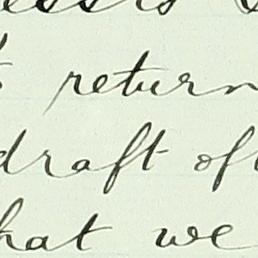 return
draft of
hat we